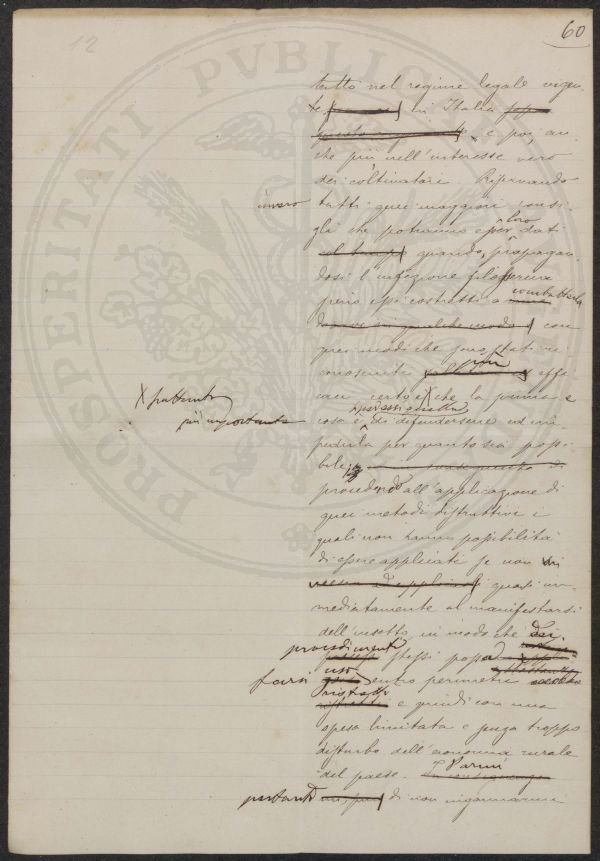 12
60
tutto nel regime legale vigen-
te in Italia
e poi, an-
che più nell'interesse vero
dei coltivatori. Riservando
invero
tutti quei maggiori consi-
gli che potranno esser loro dati
quando, propagan-
dosi l'infezione filosserica
sono essi costretti a combatterla
con
quei modi che sono stati ri-
conosciuti più effi-
caci certo è X che la prima e
X pertanto
più importante
cosa è di difendersene ed im-
pedirla per quanto sia possi-
bile,
procedendo all'applicazione di
quei metodi distruttivi i
quali non hanno possibilità
di essere applicati se non
quasi im-
mediatamente al manifestarsi
dell'insetto, in modo che dei
provvedimenti stessi possa
farsi uso entro perimetri
ristretti e quindi con una
spesa limitata e senza troppo
disturbo dell'economia rurale
del paese. Parmi
pertanto di non ingannarmi
PROSPERITATI PVBLICAE